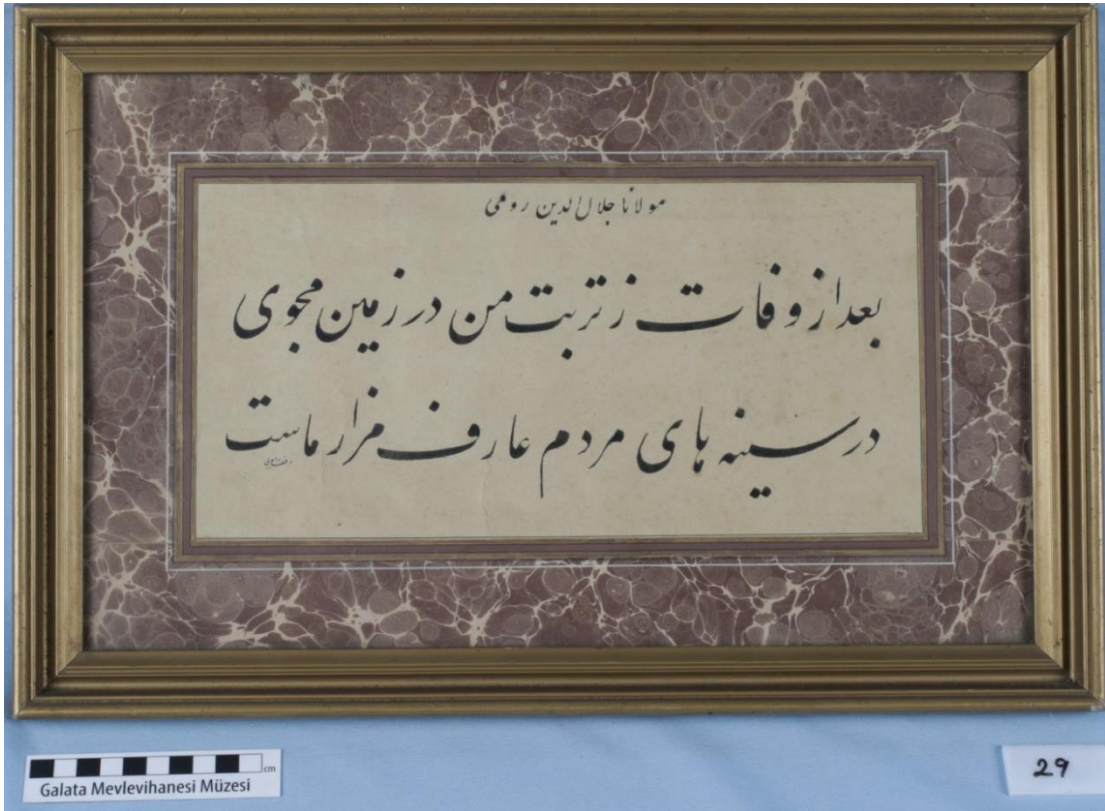 مولانا جلال الدین رومی
بعد از وفات ز تربت من در زمین مجوی
در سینه های مردم عارف مزار ماست
cm
Galata Mevlevihanesi Müzesi
29